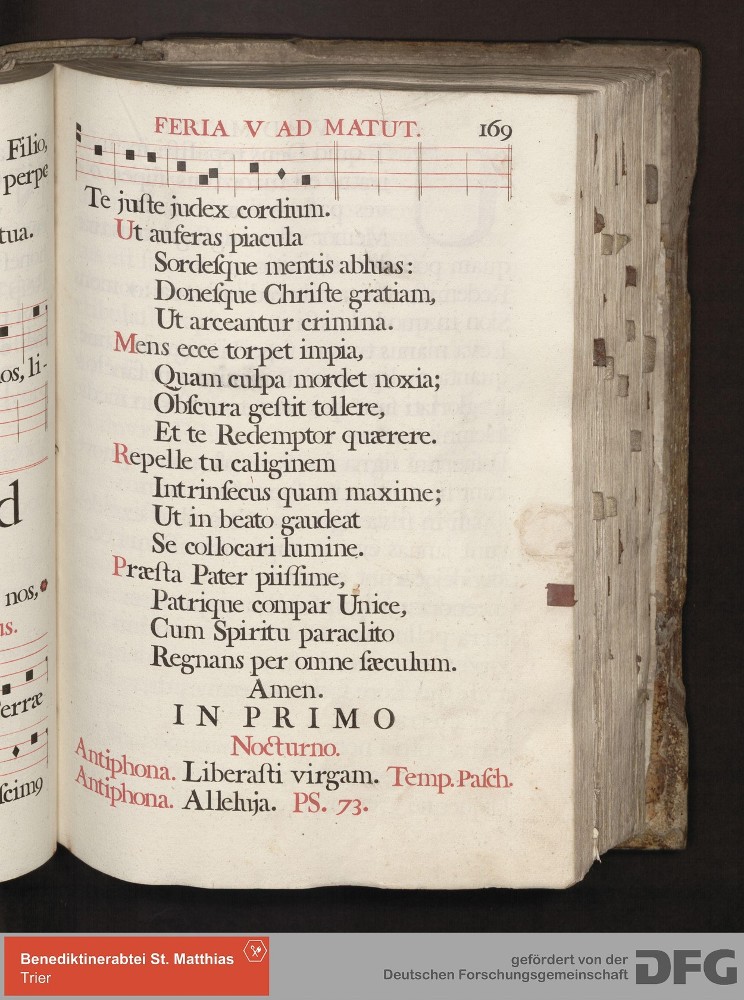 Filio,
perpe
tua.
os, li-
d
nos,
is.
erræ
ſcimꝰ
FERIA V AD MATUT. 169
Te juſte judex cordium.
Ut auferas piacula
Sordeſque mentis abluas:
Doneſque Chriſte gratiam,
Ut arceantur crimina.
Mens ecce torpet impia,
Quam culpa mordet noxia;
Obſcura geſtit tollere,
Et te Redemptor quærere.
Repelle tu caliginem
Intrinſecus quam maxime;
Ut in beato gaudeat
Se collocari lumine.
Præſta Pater piiſſime,
Patrique compar Unice,
Cum Spiritu paraclito
Regnans per omne ſæculum.
Amen.
IN PRIMO
Nocturno.
Antiphona. Liberaſti virgam. Temp. Paſch.
Antiphona. Alleluja. PS. 73.
Benediktinerabtei St. Matthias
Trier
gefördert von der
Deutschen Forschungsgemeinschaft DFG